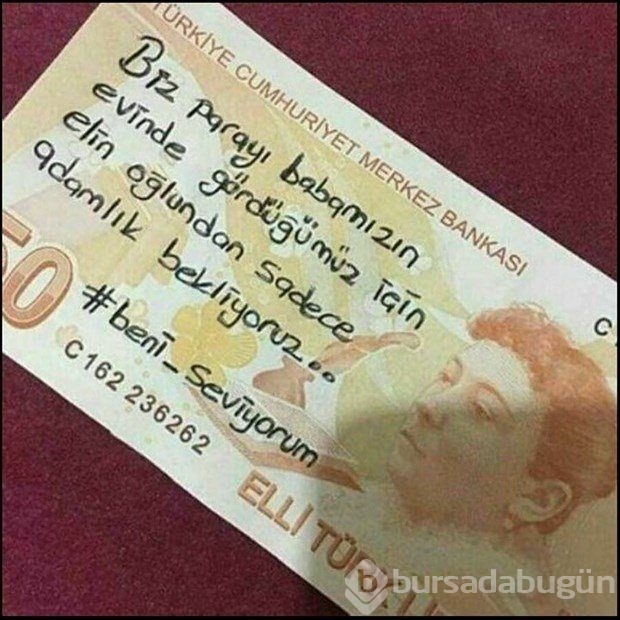 TÜRKİYE CUMHURİYET MERKEZ BANKASI
Biz parayı babamızın
evinde gördüğümüz için
elin oğlundan sadece
adamlık bekliyoruz..
#beni_seviyorum
50
C 162 236262
C
ELLİ TÜRK
bursadabugün